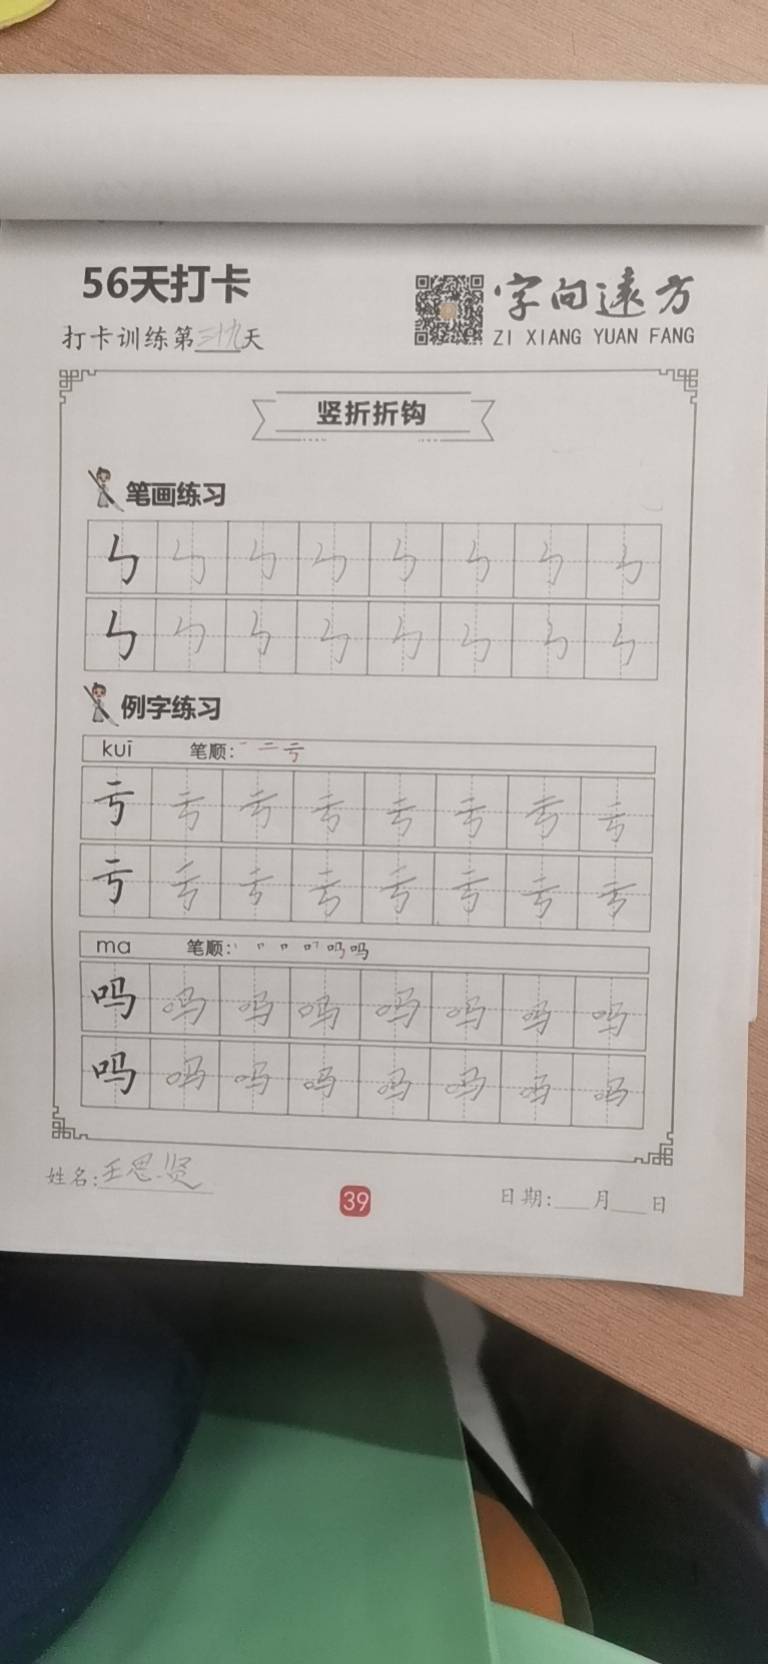 56天打卡
字向遠方
打卡训练第三十九天
ZI XIANG YUAN FANG
竖折折钩
笔画练习
㇉ ㇉ ㇉ ㇉ ㇉ ㇉ ㇉ ㇉
㇉ ㇉ ㇉ ㇉ ㇉ ㇉ ㇉ ㇉
例字练习
kuī 笔顺: 一 二 亏
亏 亏 亏 亏 亏 亏 亏 亏
亏 亏 亏 亏 亏 亏 亏 亏
ma 笔顺: 吗 吗
吗 吗 吗 吗 吗 吗 吗 吗
吗 吗 吗 吗 吗 吗 吗 吗
姓名:王思贤
39
日期:___月___日